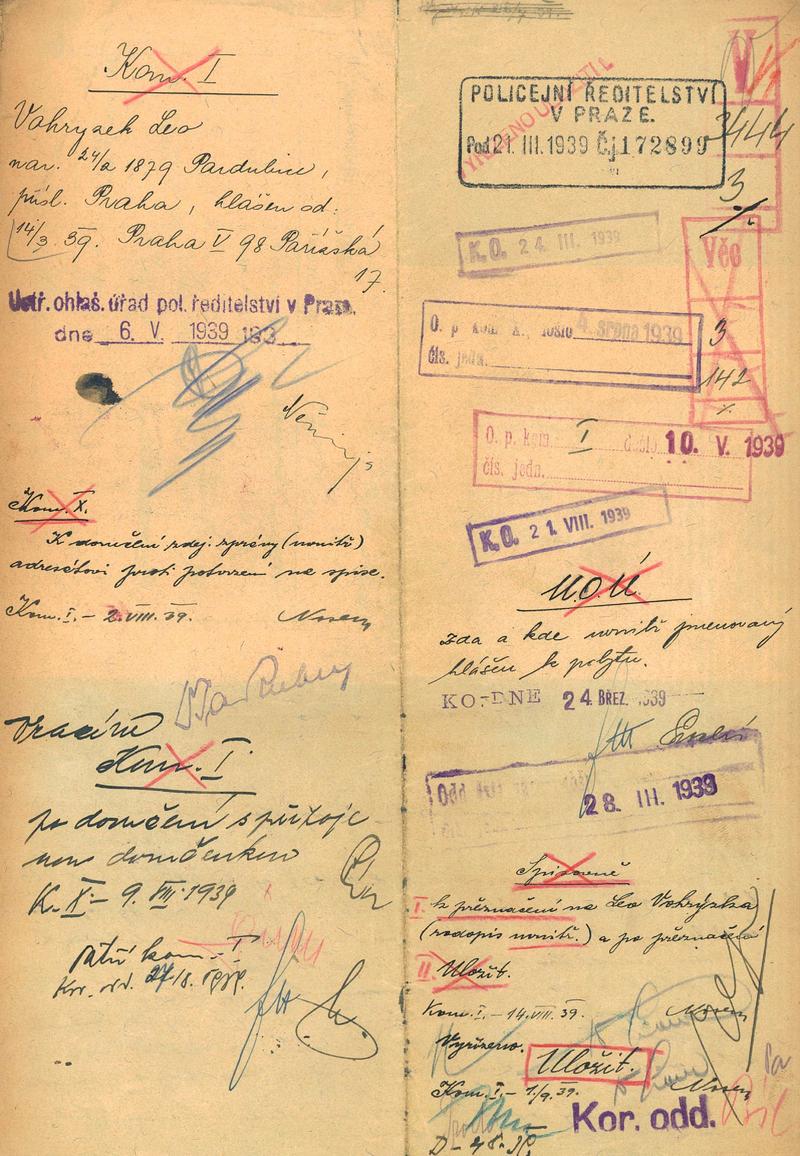 Kom. I
Vohryzek Leo
nar. 24/2 1879 Pardubice,
přísl. Praha, hlášen od:
14/3. 39. Praha V 98 Pařížská
17.
Ústř. ohlaš. úřad pol. ředitelství v Praze.
dne 6. V. 1939 193
Kom. X.
K doručení zdej. zprávy (uvnitř)
adresátovi proti potvrzení na spise.
Kom. I. - 2. VIII. 39. Nosem
Vracím
Kom. I.
po doručení s připoje
nou doručenkou
K. X - 9. VIII 1939
Patří kom. I
Kor. od. 27/8. 1939.
POLICEJNÍ ŘEDITELSTVÍ
V PRAZE.
Pod 21. III. 1939 Čj 172899
V
3444
3
K. O. 24. III. 1939
Věc
O. p. kom. X., došlo 4. srpna 1939
čís. jedn.
3
142
O. p. kom. I došlo 10. V. 1939
čís. jedn.
K. O. 21. VIII. 1939
U.O.Ú.
zda a kde uvnitř jmenovaný
hlášen k pobytu.
KO-DNE 24 BŘEZ. 1939
Odd
28. III. 1939
Spisovně
I. k přeznačení na Leo Vohrýzka
(rodopis uvnitř.) a po přeznačení
II Uložit.
Kom. I. - 14. VIII. 39. Nosem
Vyřízeno.
Uložit.
Kom. I. - 1/9. 39. Nosem
Kor. odd.